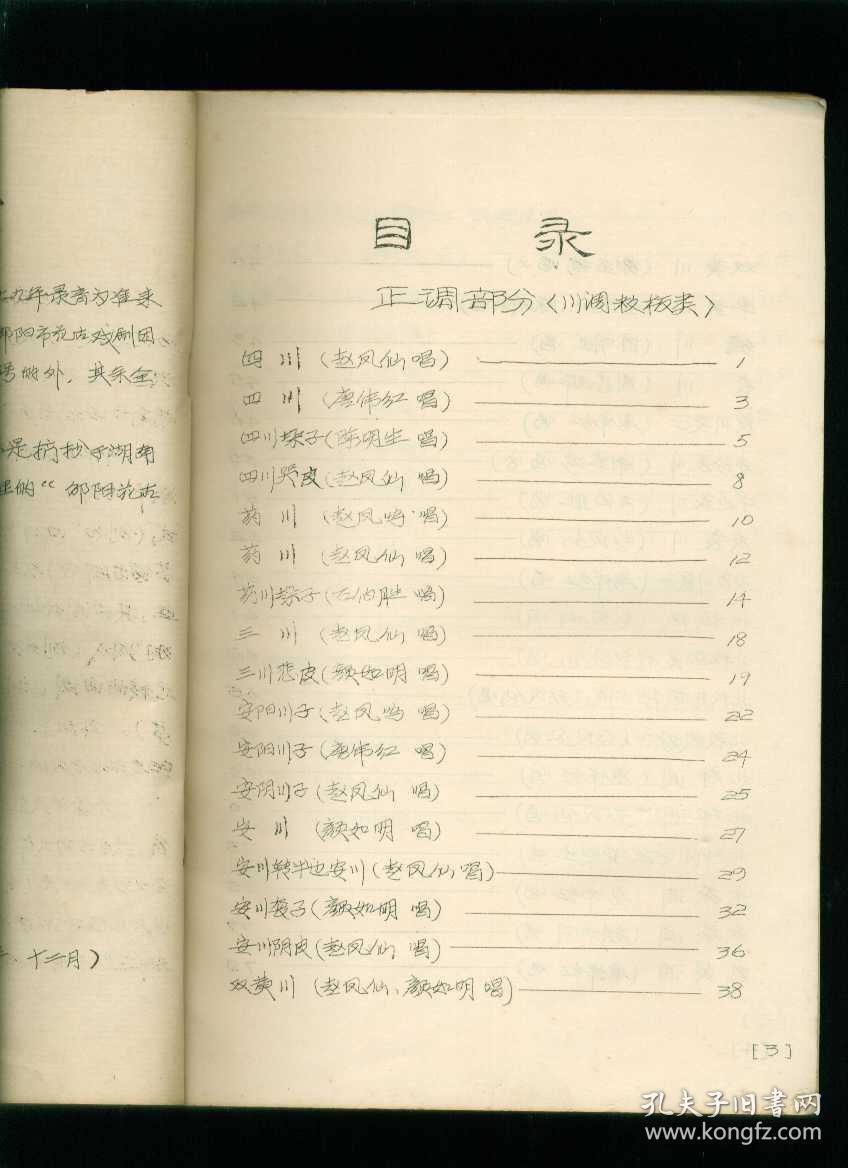 九年录音为准来
邵阳市花古戏剧团
外，其余全
是摘抄于湖南
里的“邵阳花古
十二月）
目 录
正调部分〈川调数板类〉
四 川（赵凤仙唱） 1
四 川（唐伟红唱） 3
四川梆子（陈明生唱） 5
四川哭皮（赵凤仙唱） 8
药 川（赵凤鸣唱） 10
药 川（赵凤仙唱） 12
药川梆子（石伯胜唱） 14
三 川（赵凤仙唱） 18
三川悲皮（颜如明唱） 19
安阳川子（赵凤鸣唱） 22
安阳川子（唐伟红唱） 24
安阴川子（赵凤仙唱） 25
安 川（颜如明唱） 27
安川转半边安川（赵凤仙唱） 29
安川子（颜如明唱） 32
安川阴皮（赵凤仙唱） 36
双黄川（赵凤仙、颜如明唱） 38
[3]
孔夫子旧书网
www.kongfz.com